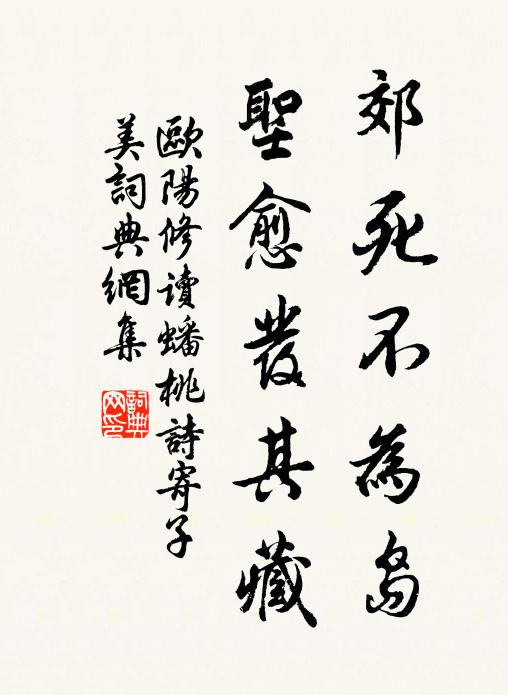 郊死不為島
聖愈發其藏
歐陽修讀蟠桃詩寄子
美詞典網集
詞典
网印